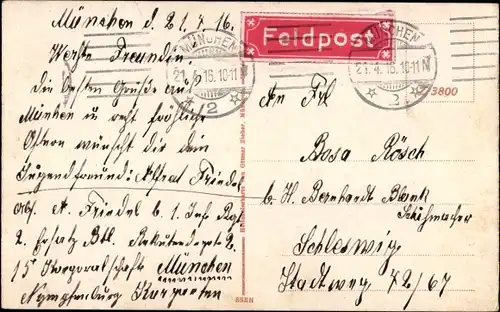 München d. 21.4.16.
Werte Freundin!
Die besten Grüße aus
München u. recht fröhliche
Ostern wünscht dir dein
Jugendfreund: Alfred Friedel
Abs. A. Friedel b. 1. Inf. Rgt
2. Ersatz Btl. Rekrutendepot 2.
15 Korporalschaft München
Nymphenburg
Feldpost
MÜNCHEN
21.4.16.10-11 N
* 2 *
MÜNCHEN
21.4.16.10-11 N
2
3800
An Frl
Rosa Rösch
b. H. Bernhardt Blank
Schuhmacher
Schleswig
Stadtweg 72/67
von Ottmar Zieher, Mü